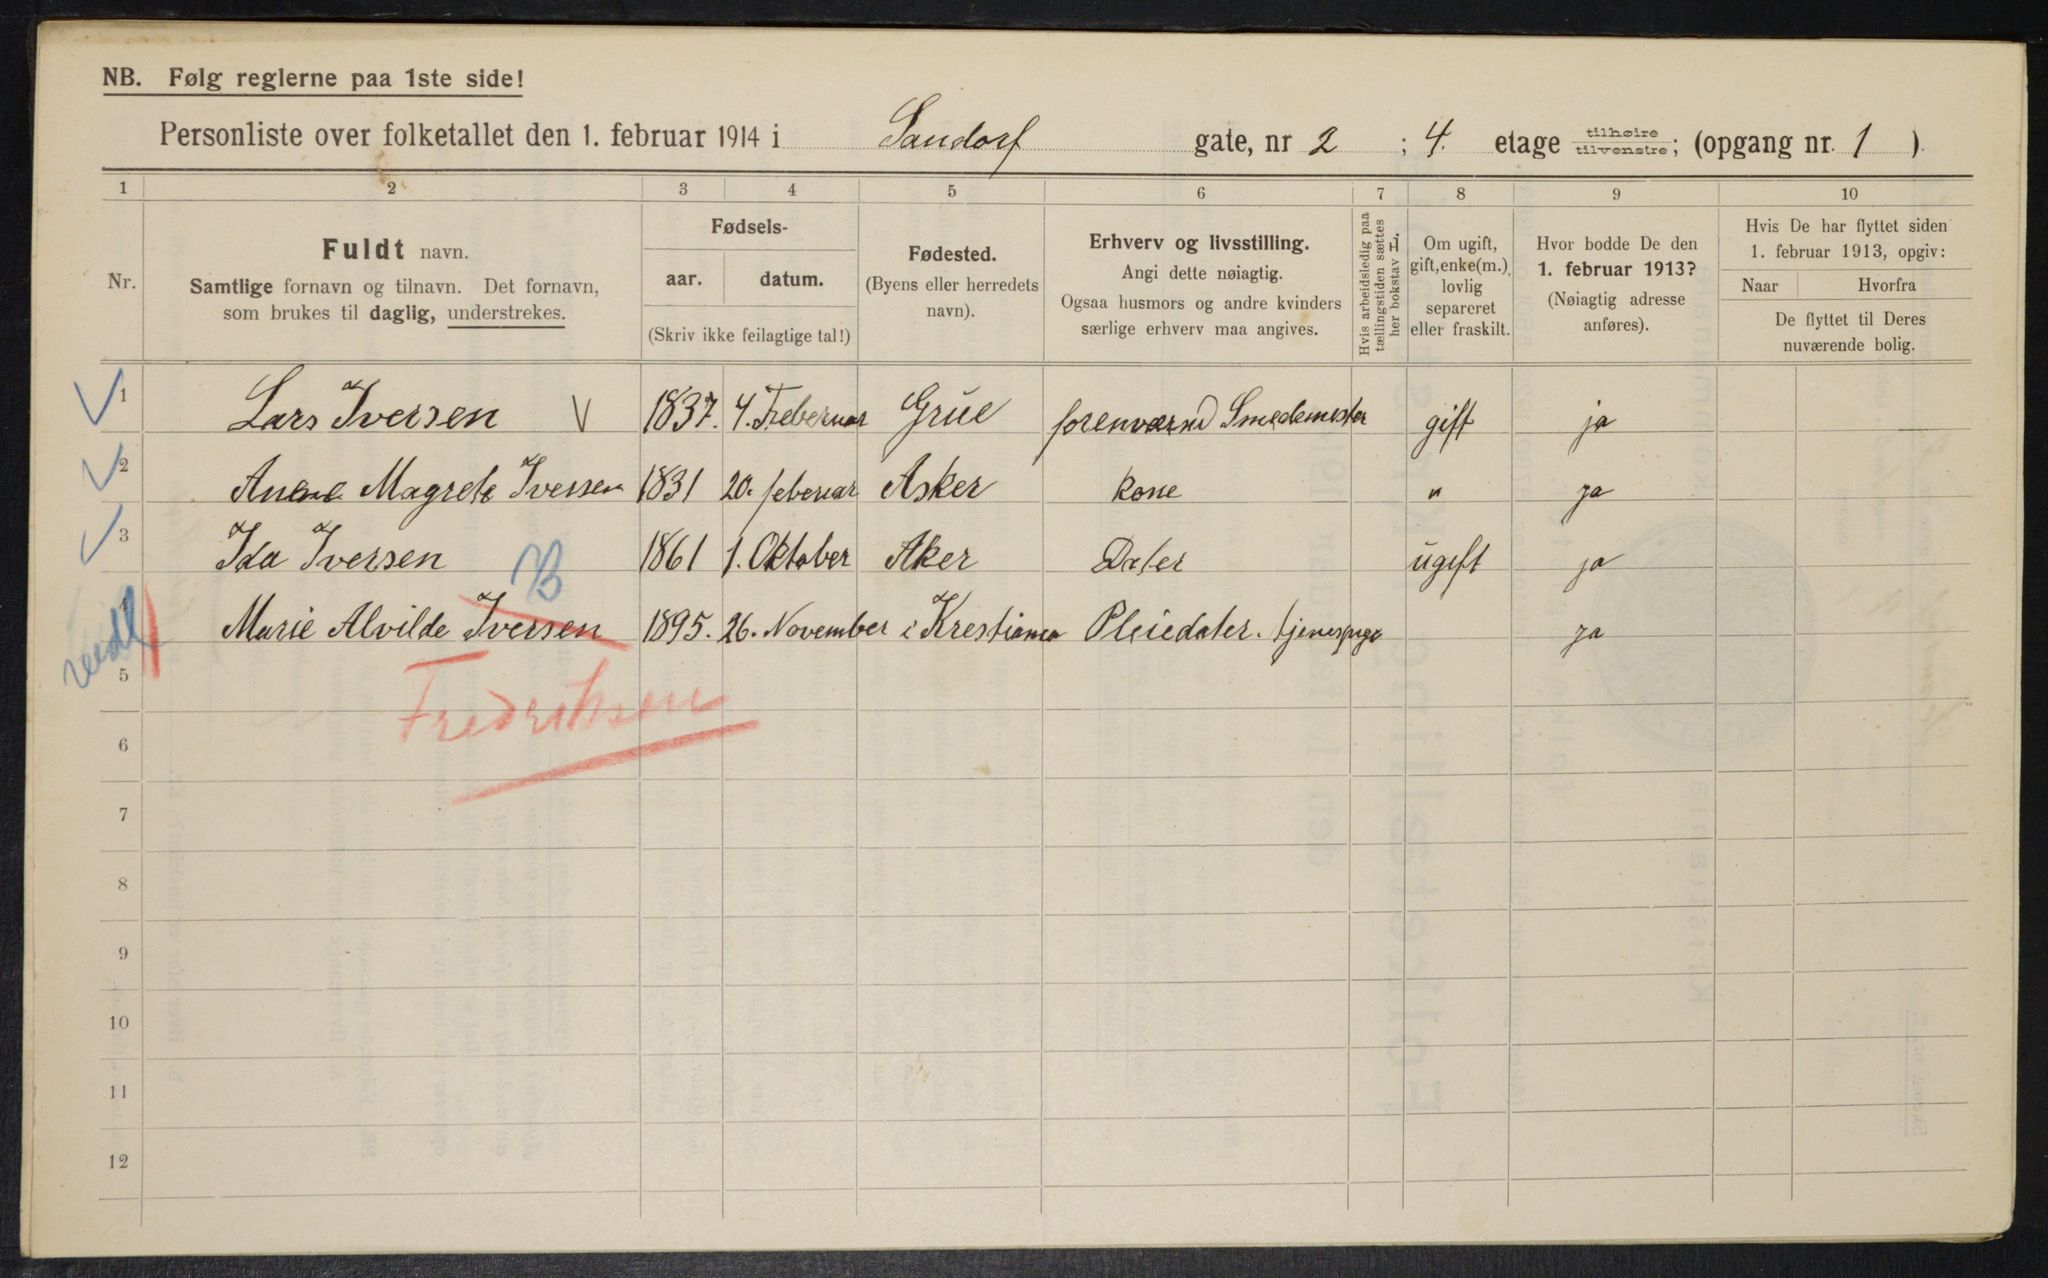 NB. Følg reglerne paa 1ste side!
Personliste over folketallet den 1. februar 1914 i Sandorf gate, nr 2 ; 4. etage tilhøire tilvenstre; (opgang nr. 1 )
1 2 3 4 5 6 7 8 9 10
Nr.
Fuldt navn.
Samtlige fornavn og tilnavn. Det fornavn,
som brukes til daglig, understrekes.
Fødsels-
aar. datum.
(Skriv ikke feilagtige tal!)
Fødested.
(Byens eller herredets
navn).
Erhverv og livsstilling.
Angi dette nøiagtig.
Ogsaa husmors og andre kvinders
særlige erhverv maa angives.
Hvis arbeidsledig paa
tællingstiden sættes
her bokstav L.
Om ugift,
gift, enke(m.),
lovlig
separeret
eller fraskilt.
Hvor bodde De den
1. februar 1913?
(Nøiagtig adresse
anføres).
Hvis De har flyttet siden
1. februar 1913, opgiv:
Naar Hvorfra
De flyttet til Deres
nuværende bolig.
1 Lars Iversen V 1837. 4. Frebernar Grue forenværnd Smedemester gift ja
2 Magrete Iversen 1831 20. feberuar Asker kone " ja
3 Ida Iversen 1861 1. Oktober Aker Dater ugift ja
B
4 Marie Alvilde Iversen 1895. 26. November i Krestiania Pleiedater. ja
Fredriksen
5
6
7
8
9
10
11
12